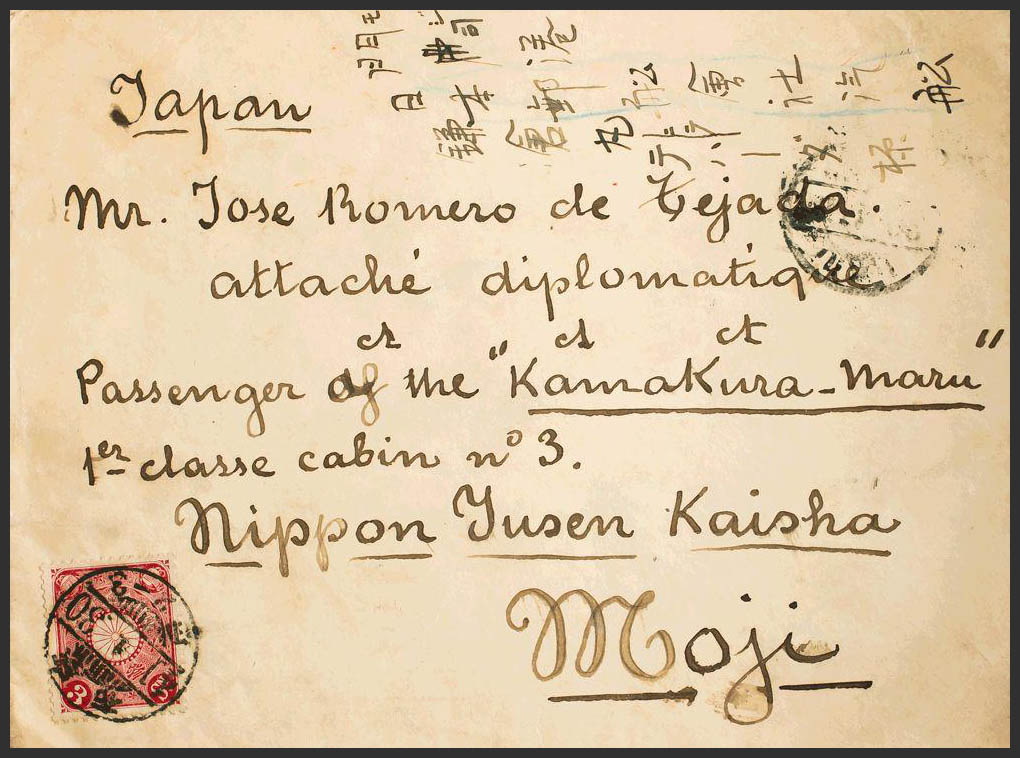 門司港
日本郵船會社汽船
鎌倉丸
様
Japan
Mr. Jose Romero de Tejada.
attaché diplomatique
et et et
Passenger of the "Kamakura-Maru"
1er classe cabin nº 3.
Nippon Yusen Kaisha
Moji
3 3